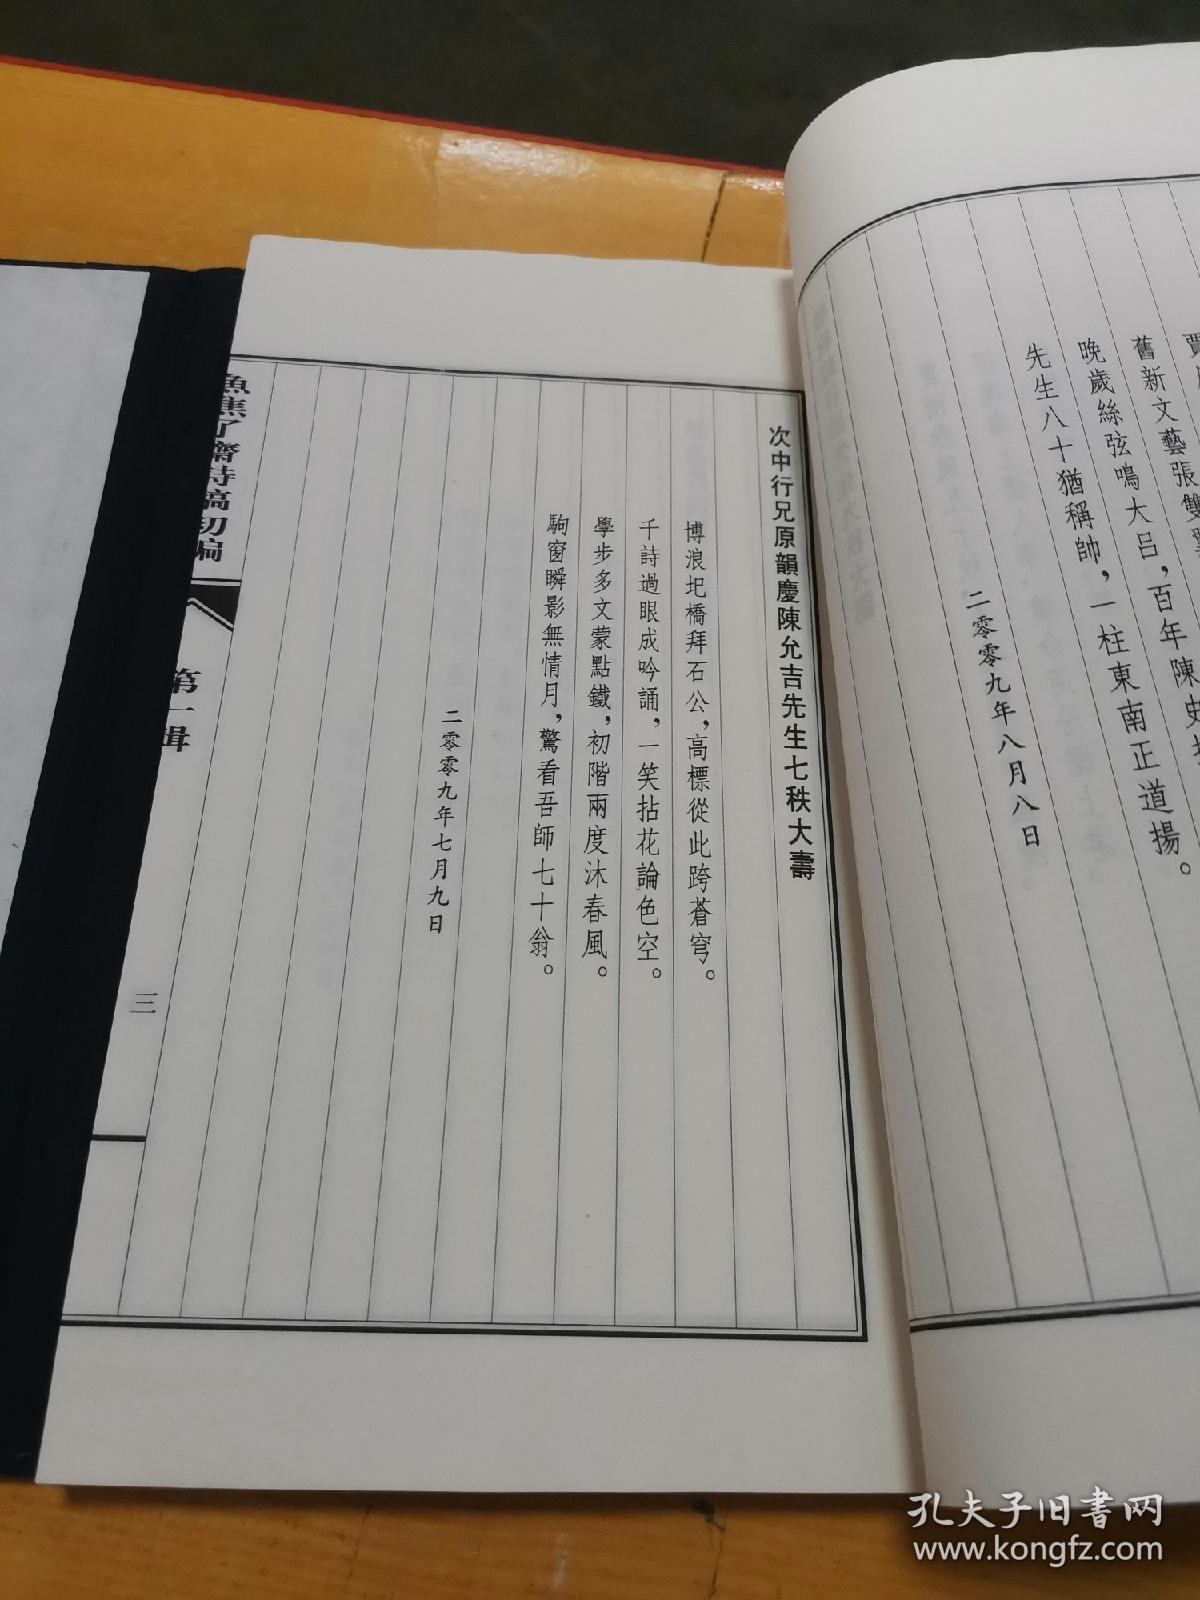 舊新文藝張雙
晚歲絲弦鳴大呂，百年陳史
先生八十猶稱帥，一柱東南正道揚。
二零零九年八月八日
次中行兄原韻慶陳允吉先生七秩大壽
博浪圯橋拜石公，高標從此跨蒼穹。
千詩過眼成吟誦，一笑拈花論色空。
學步多文蒙點鐵，初階兩度沐春風。
駒窗瞬影無情月，驚看吾師七十翁。
二零零九年七月九日
魚焦了齋詩稿初編
第一輯
三
孔夫子旧书网
www.kongfz.com